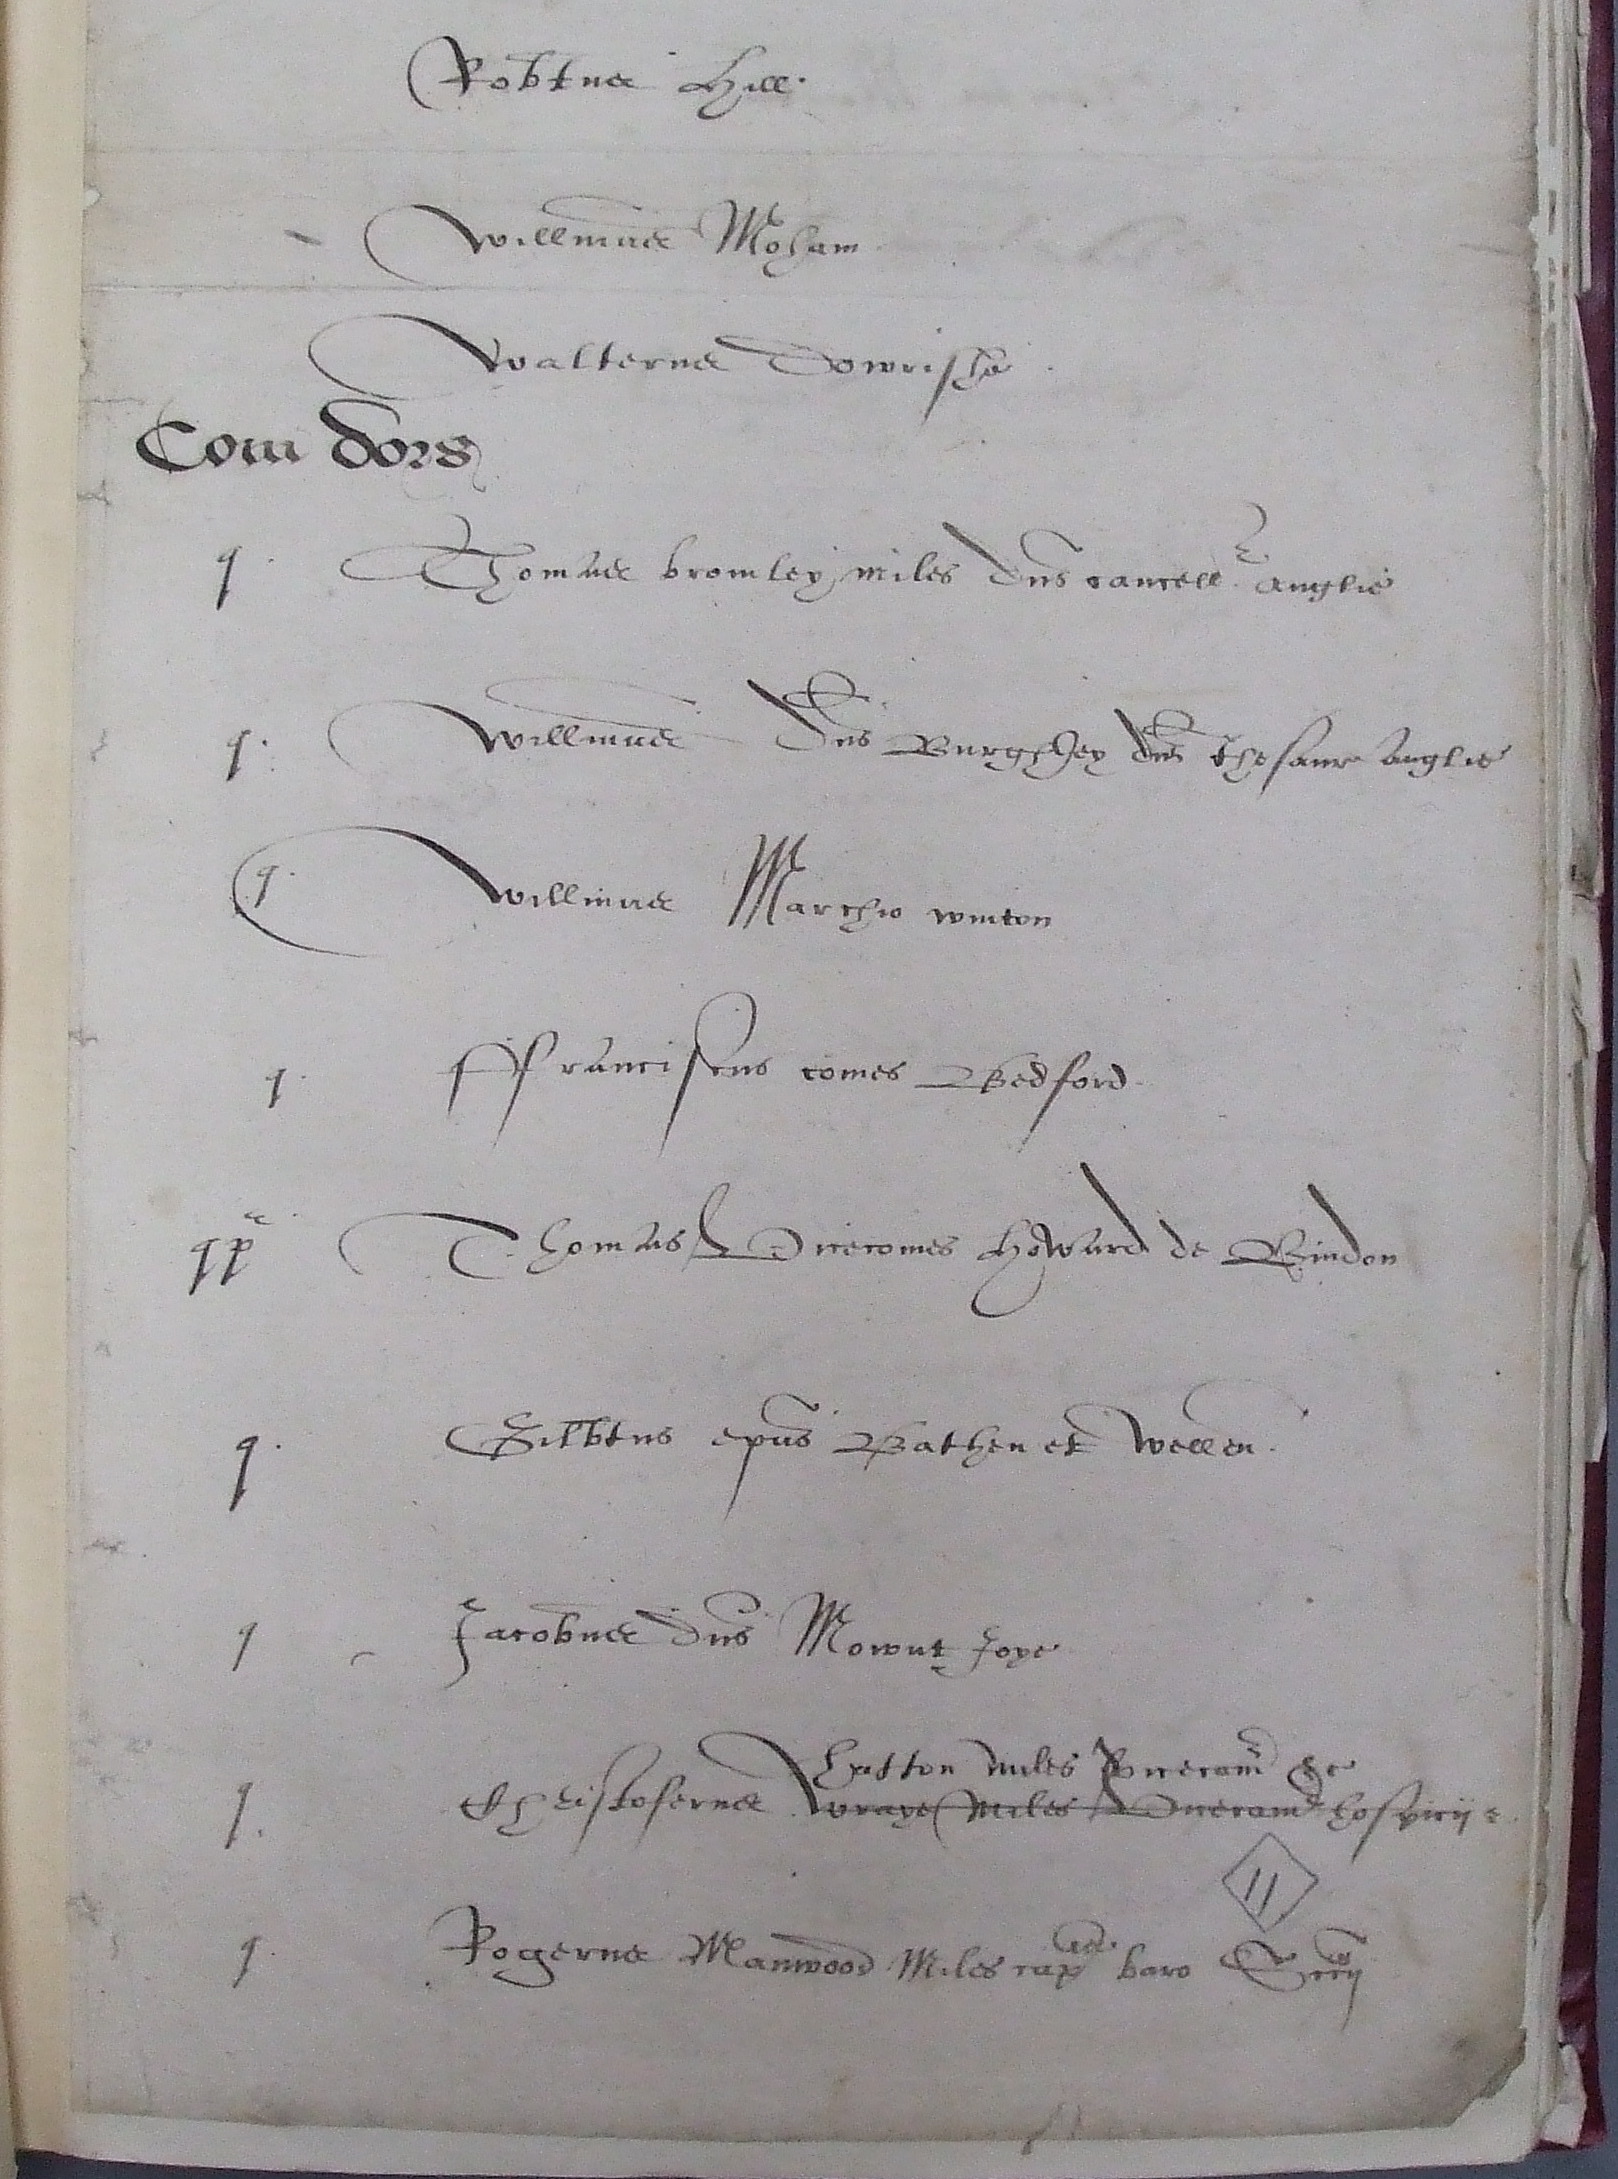 Robtus Hill
Willmus Moham
Walterus Dowrishe
Com Dors
q Thomas bromley miles dns cancell Anglie
q Willmus dns Burghley dns thesaur Anglie
q Willmus Marchio winton
q ffranciscus comes Bedford
qq Thomas vicecomes howard de Bindon
q Gilbtus epus Bathen et Wellen
q Jacobus dns Mownt Joye
hatton miles vicecam &c
q Christoferus wraye miles vicecam hospicij
11
q Rogerus Manwood Miles cap baro Sccij